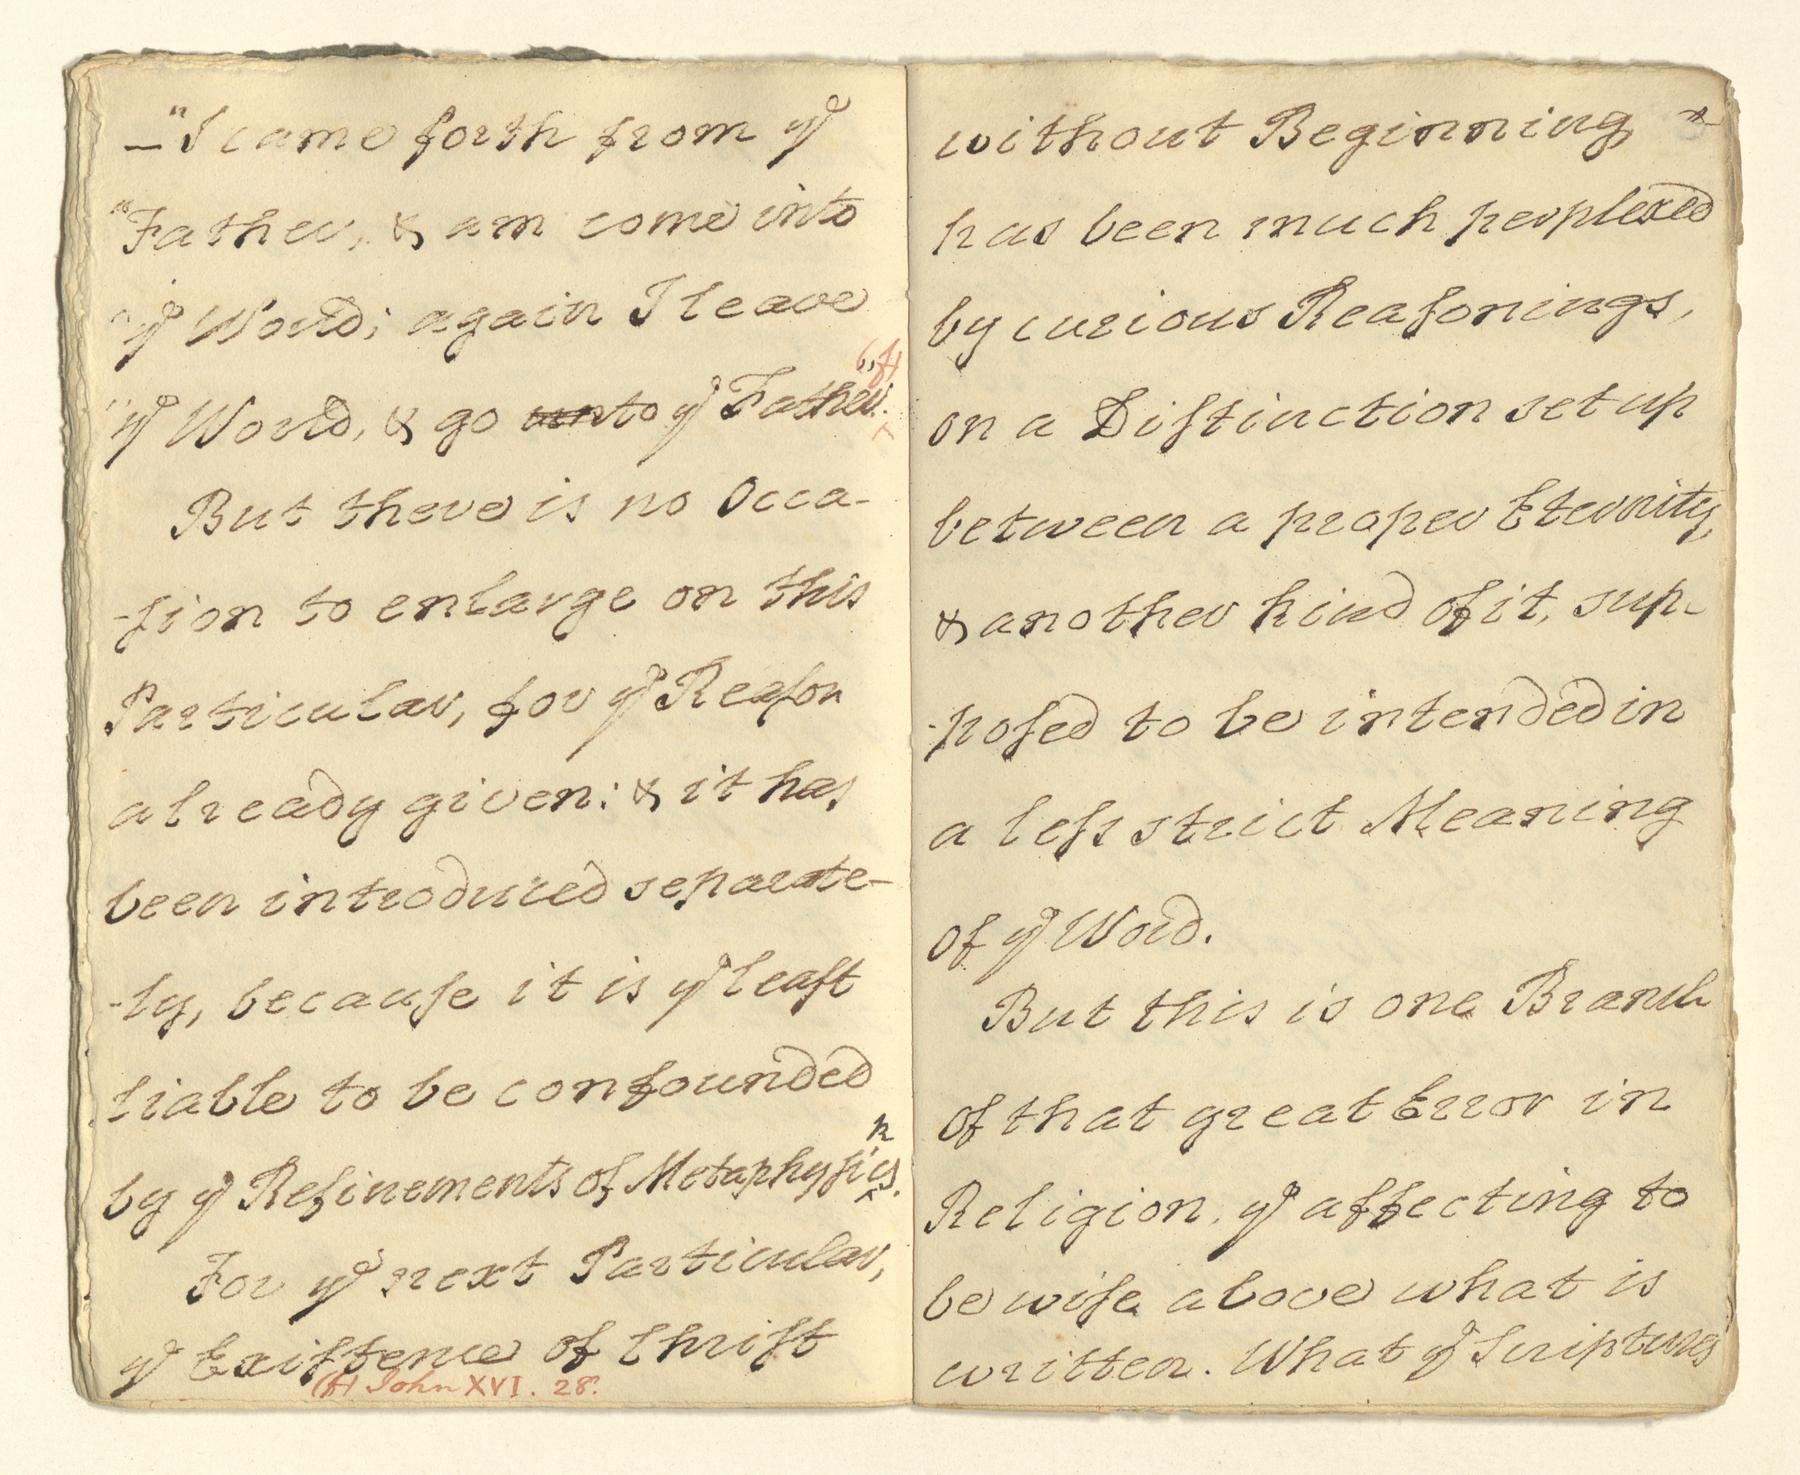 —"I came forth from yᵉ
"Father, & am come into
"yᵉ World; again I leave
"yᵉ World, & go unto yᵉ Father."(f)
But there is no Occa-
-ſion to enlarge on this
Particular, for yᵉ Reaſon
already given: & it has
been introduced separate-
-ly, becauſe it is yᵉ leaſt
liable to be confounded
by yᵉ Refinements of Metaphyſicks.
For yᵉ next Particular,
yᵉ Exiſtence of Chriſt
(f) John XVI. 28.
without Beginning
has been much perplexed
by curious Reaſonings,
on a Diſtinction set up
between a proper Eternity,
& another kind of it, sup-
-poſed to be intended in
a leſs strict Meaning
of yᵉ Word.
But this is one Branch
of that great Error in
Religion, yᵉ affecting to
be wiſe above what is
written. What yᵉ Scriptures